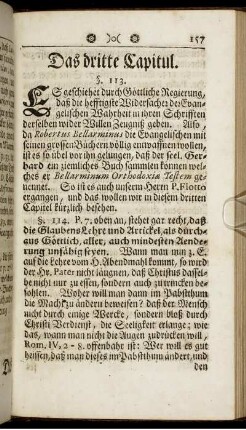 157
Das dritte Capitul.
§. 113.
ES geschiehet durch Göttliche Regierung,
daß die hefftigste Widersacher der Evan-
gelischen Wahrheit in ihren Schrifften
derselben wider Willen Zeugniß geben. Also
da Robertus Bellarminus die Evangelischen mit
seinen grossen Büchern völlig entwaffnen wollen,
ist es so übel vor ihn gelungen, daß der seel. Ger-
hard ein ziemliches Buch sammlen können wel-
ches er Bellarminum Orthodoxiæ Testem ge-
nennet. So ist es auch unserm Herrn P. Flotto
ergangen, und das wollen wir in diesem dritten
Capitel kürzlich besehen.
§. 114. P. 7. oben an, stehet gar recht, daß
die Glaubens Lehre und Articket, als durch-
aus Göttlich, aller, auch mindesten Aende-
rung unfähig seyen. Wann man nun z. E.
auf die Lehre vom H. Abendmahl kommt, so wird
der Hr. Pater nicht läugnen, daß Christus dassel-
be nicht nur zu essen, sondern auch zu trincken be-
fohlen. Woher will man dann im Pabstthum
die Macht zu ändern beweisen? daß der Mensch
nicht durch einige Wercke, sondern bloß durch
Christi Verdienst, die Seeligkeit erlange; wie
das, wann man nicht die Augen zudrücken will,
Rom. IV, 2-8. offenbahr ist: Wer will es gut
heissen, daß man dieses im Pabstthum ändert, und
den